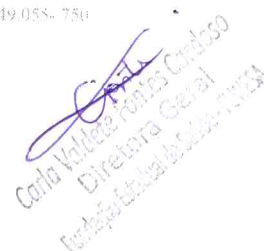 49.055-750
Carla Valdete Fontes Cardoso
Diretora Geral
Fundação Estadual de Saúde-FUNESA